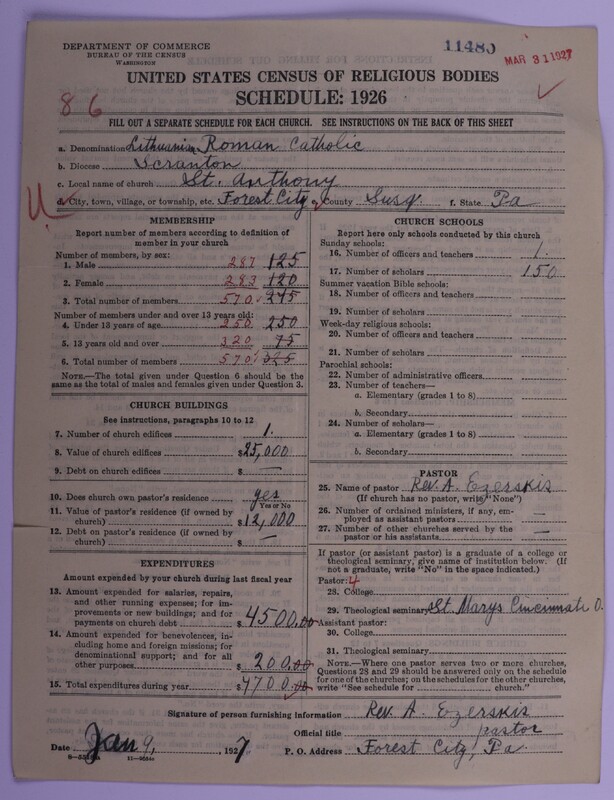 DEPARTMENT OF COMMERCE
BUREAU OF THE CENSUS
WASHINGTON
11485
MAR 31 1927
UNITED STATES CENSUS OF RELIGIOUS BODIES
SCHEDULE: 1926
86
FILL OUT A SEPARATE SCHEDULE FOR EACH CHURCH. SEE INSTRUCTIONS ON THE BACK OF THIS SHEET
a. Denomination Lithuanian Roman Catholic
b. Diocese Scranton
c. Local name of church St. Anthony
d. City, town, village, or township, etc. Forest City e. County Susq. f. State Pa
MEMBERSHIP
Report number of members according to definition of
member in your church
Number of members, by sex:
1. Male 287 125
2. Female 283 120
3. Total number of members 570 245
Number of members under and over 13 years old:
4. Under 13 years of age 250 250
5. 13 years old and over 320 75
6. Total number of members 570 325
NOTE.—The total given under Question 6 should be
the same as the total of males and females given under Question 3.
CHURCH BUILDINGS
See instructions, paragraphs 10 to 12
7. Number of church edifices 1.
8. Value of church edifices $25,000
9. Debt on church edifices $ —
10. Does church own pastor's residence yes
Yes or No
11. Value of pastor's residence (if owned by
church) $12,000
12. Debt on pastor's residence (if owned by
church) $ —
EXPENDITURES
Amount expended by your church during last fiscal year
13. Amount expended for salaries, repairs,
and other running expenses; for im-
provements or new buildings; and for
payments on church debt $4500.00
14. Amount expended for benevolences, in-
cluding home and foreign missions; for
denominational support; and for all
other purposes 200.00
15. Total expenditures during year $4700.00
CHURCH SCHOOLS
Report here only schools conducted by this church
Sunday schools:
16. Number of officers and teachers 1.
17. Number of scholars 150
Summer vacation Bible schools:
18. Number of officers and teachers
19. Number of scholars
Week-day religious schools:
20. Number of officers and teachers
21. Number of scholars
Parochial schools:
22. Number of administrative officers
23. Number of teachers—
a. Elementary (grades 1 to 8)
b. Secondary
24. Number of scholars—
a. Elementary (grades 1 to 8)
b. Secondary
PASTOR
25. Name of pastor Rev. A. Ezerskis
(If church has no pastor, write "None")
26. Number of ordained ministers, if any, em-
ployed as assistant pastors —
27. Number of other churches served by the
pastor or his assistants —
If pastor (or assistant pastor) is a graduate of a college or
theological seminary, give name of institution below. (If
not a graduate, write "No" in the space indicated.)
Pastor: 4
28. College
29. Theological seminary St. Marys Cincinnati O.
Assistant pastor:
30. College
31. Theological seminary
NOTE.—Where one pastor serves two or more churches,
Questions 28 and 29 should be answered only on the schedule
for one of the churches; on the schedules for the other churches,
write "See schedule for church."
Signature of person furnishing information Rev. A. Ezerskis
Official title pastor
Date Jan 9, 1927
P. O. Address Forest City, Pa.